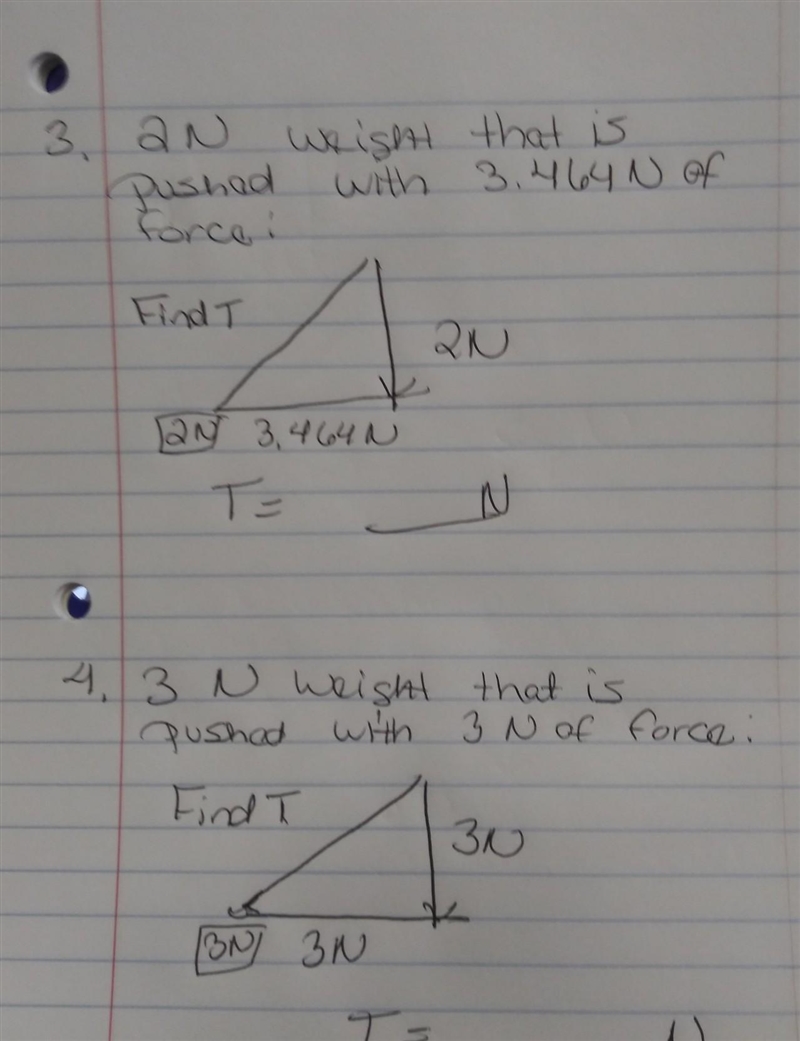 3. 2N weight that is
pushed with 3.464N of
force:
Find T
2N
2N 3.464N
T= N
4. 3 N weight that is
pushed with 3 N of force:
Find T
3N
3N 3N
T= N